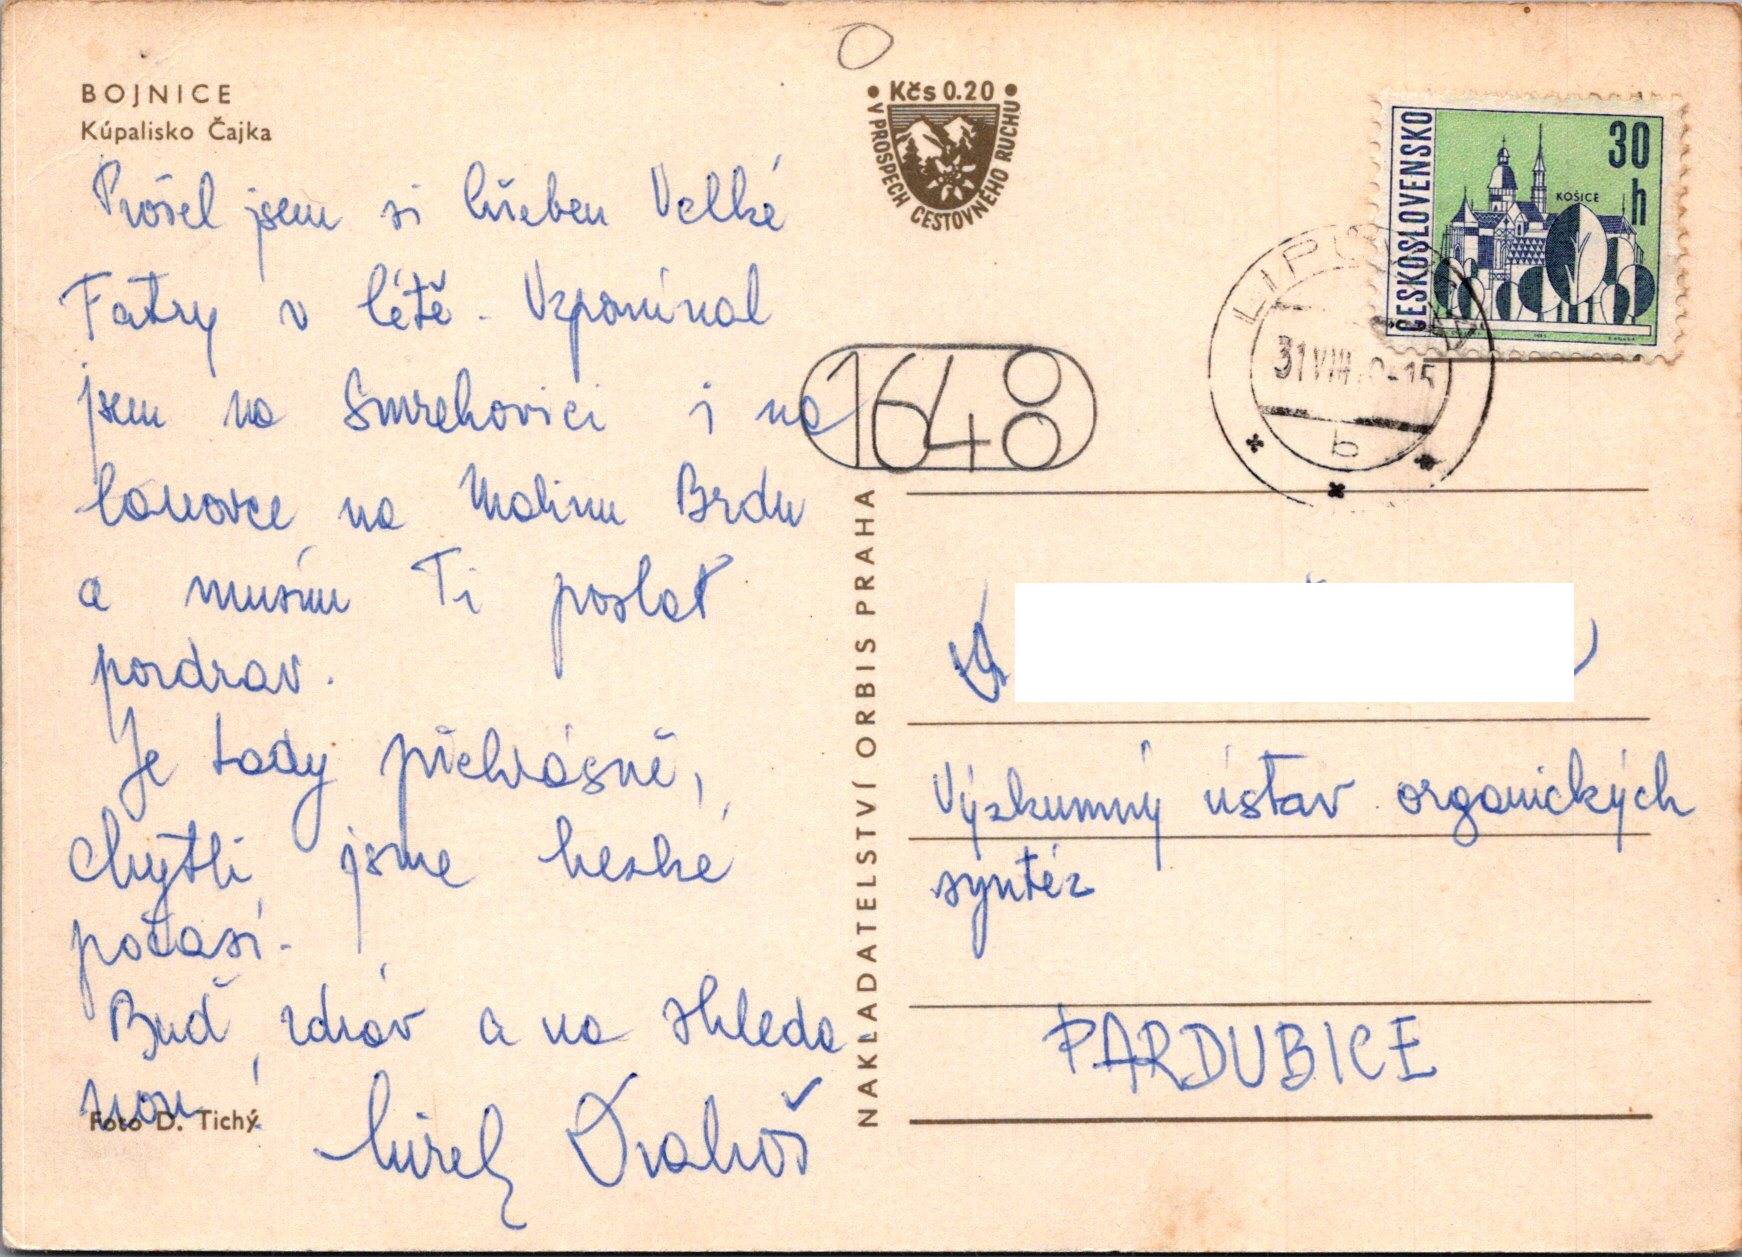 BOJNICE
Kúpalisko Čajka
Prošel jsem si hřeben Velké
Fatry v létě. Vzpomínal
jsem na Smrekovici i na
lanovce na Malinu Brdu
a musím Ti poslat
pozdrav.
Je tady překrásně,
chytli jsme hezké
počasí.
Buď zdráv a na shleda
nou.
Foto D. Tichý
Drahoš
Kčs 0.20
V PROSPECH CESTOVNÉHO RUCHU
NAKLADATELSTVÍ ORBIS PRAHA
1648
ČESKOSLOVENSKO
30
h
KOŠICE
31 VIII
-15
b
Výzkumný ústav organických
syntéz
PARDUBICE